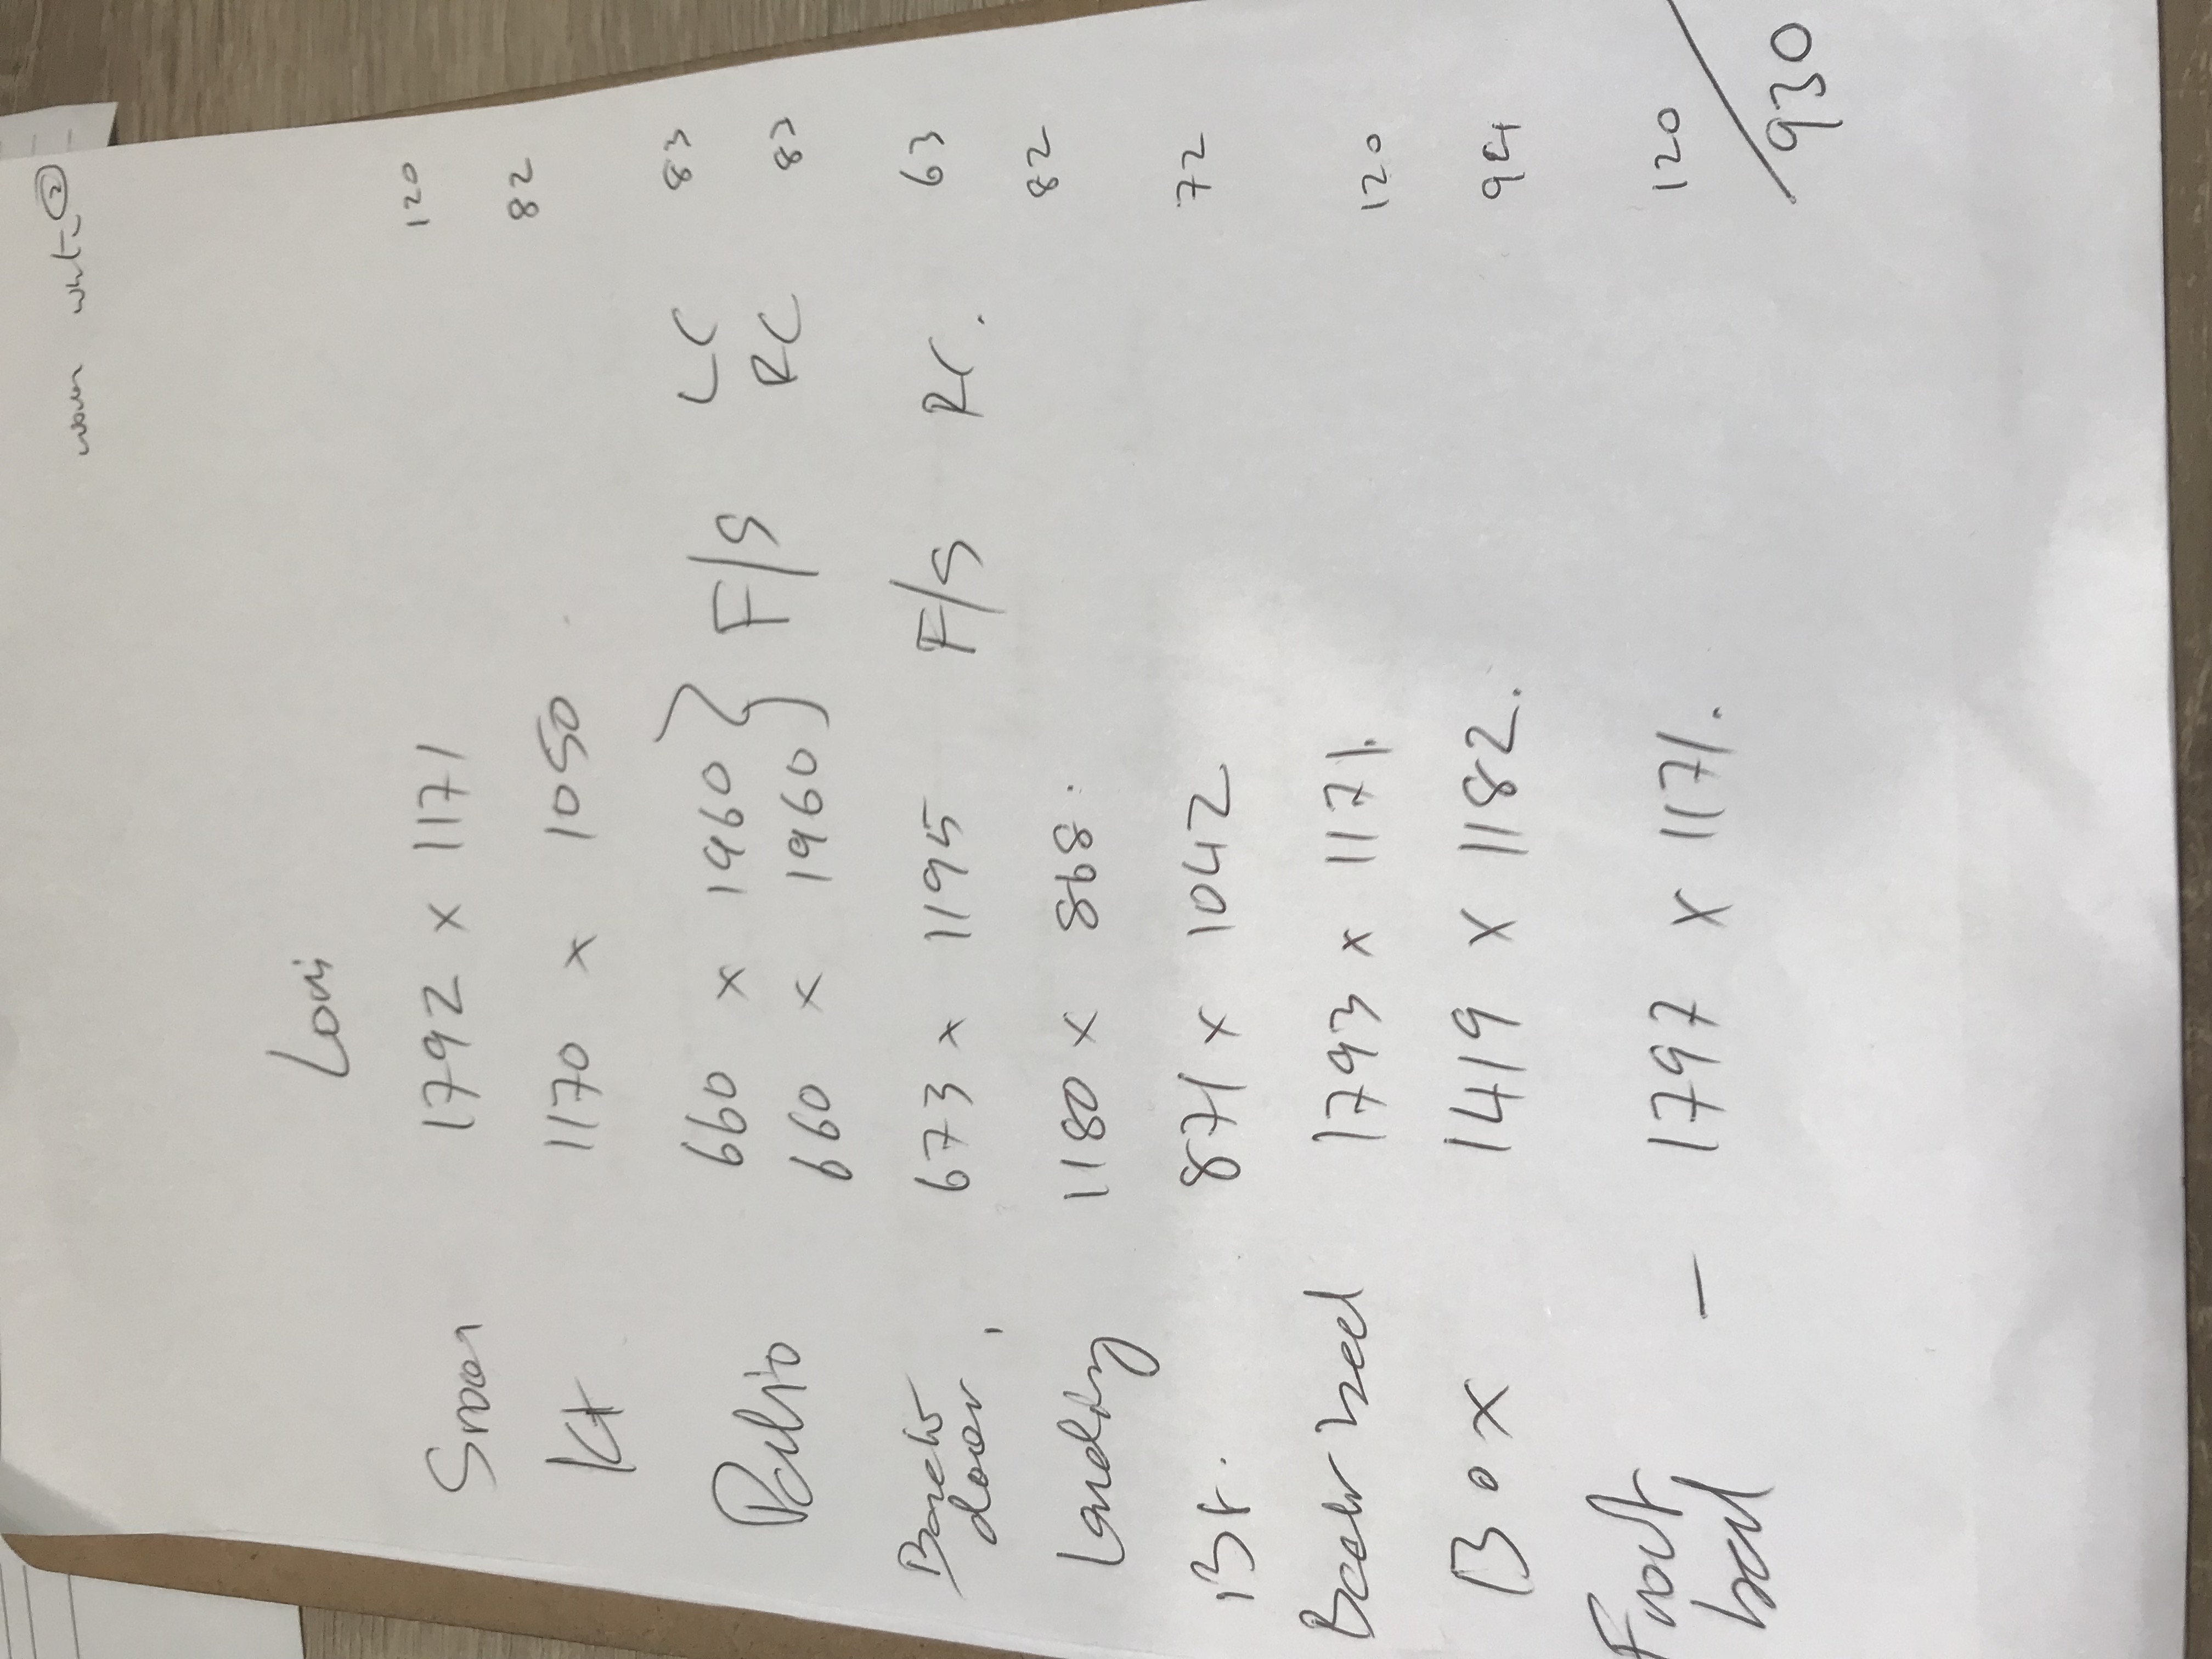 warm white (2)
Louis
Snow 1792 x 1171 120
Kt 1170 x 1050 82
Patio 660 x 1960 } F/S LC 83
660 x 1960 } F/S RC 83
Back door 673 x 1195 F/S RC. 63
Landing 1180 x 868. 82
Br. 871 x 1042 72
Back bed 1793 x 1171. 120
Box 1419 x 1182. 94
Front bed – 1797 x 1171. 120
930